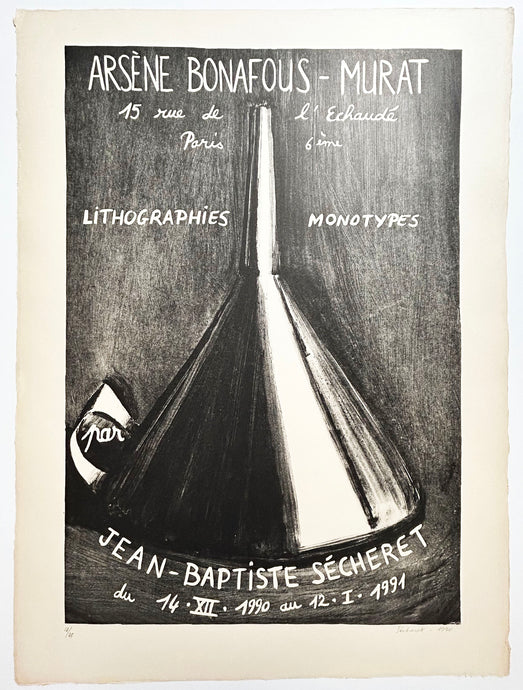 ARSÈNE BONAFOUS - MURAT
15 rue de l'Echaudé
Paris 6ème
LiTHOGRAPHiES MONOTYPES
par
JEAN-BAPTiSTE SÉCHERET
du 14 · XII · 1990 au 12 · I · 1991